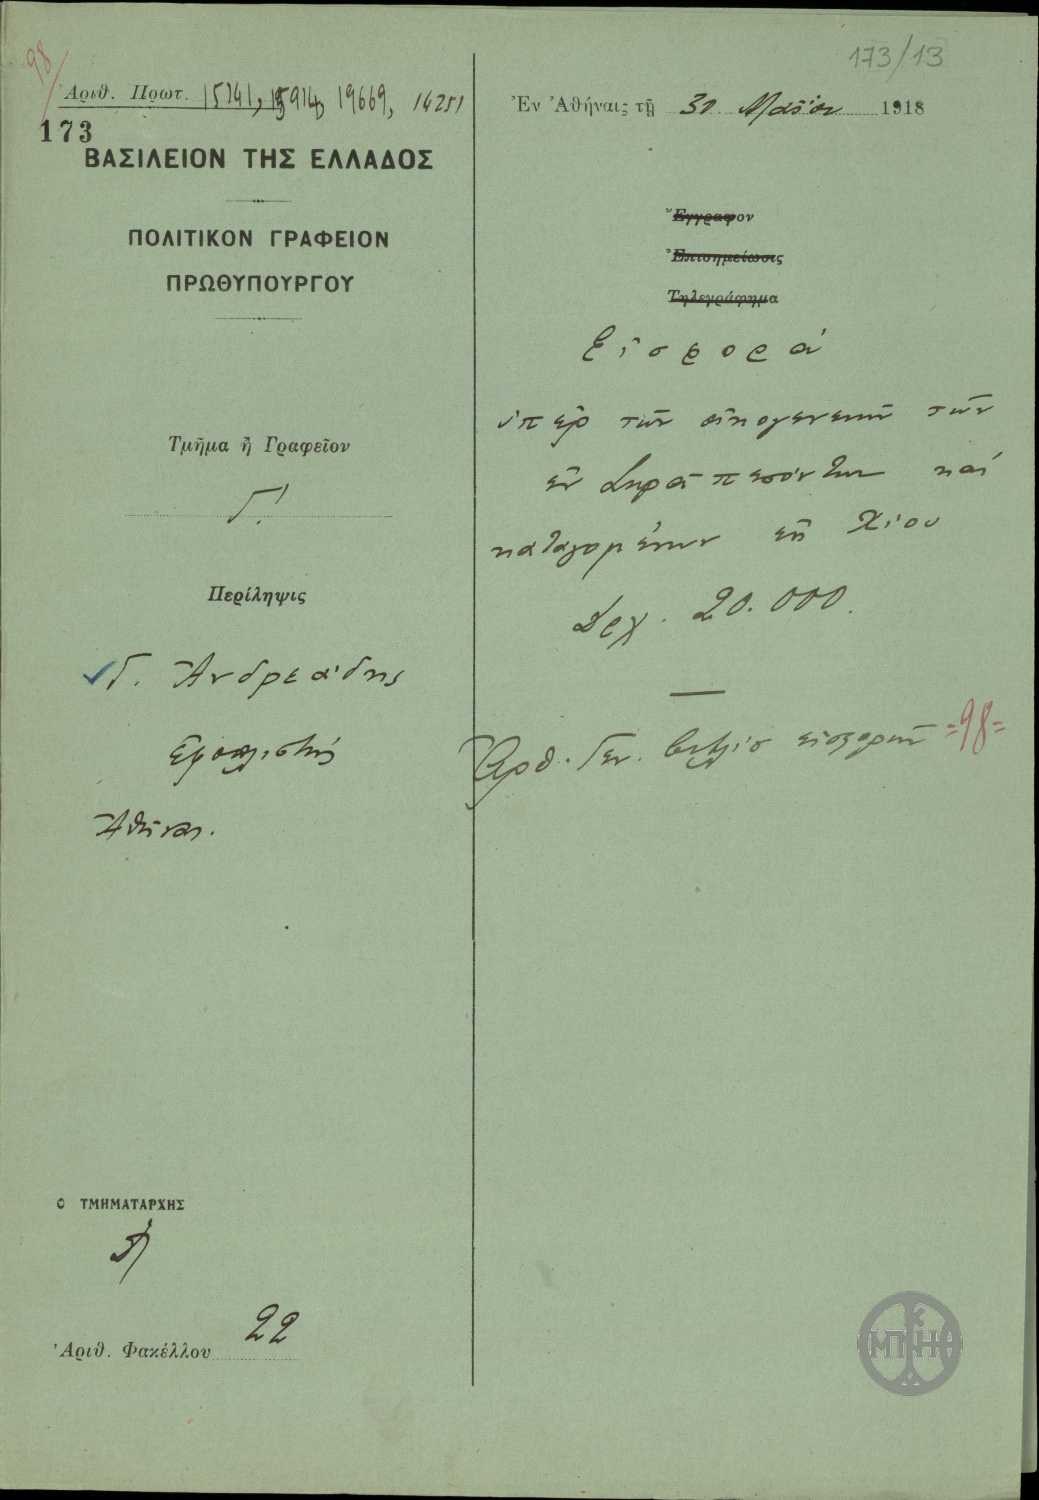 98
173/13
Ἀριθ. Πρωτ. 15741, 15914, 19669, 14251
173
ΒΑΣΙΛΕΙΟΝ ΤΗΣ ΕΛΛΑΔΟΣ
ΠΟΛΙΤΙΚΟΝ ΓΡΑΦΕΙΟΝ
ΠΡΩΘΥΠΟΥΡΓΟΥ
Τμῆμα ἢ Γραφεῖον
Γ!
Περίληψις
Γ. Ἀνδρεάδης
Ἐφοπλιστής
Ἀθήνας.
Ο ΤΜΗΜΑΤΑΡΧΗΣ
Ἀριθ. Φακέλλου 22
Ἐν Ἀθήναις τῇ 30 Μαΐου 1918
Ἔγγραφον
Ἐπισημείωσις
Τηλεγράφημα
Εἰσφορά
ὑπὲρ τῶν οἰκογενειῶν τῶν
ἐν Σκρᾶ πεσόντων καὶ
καταγομένων ἐκ Χίου
Δρχ. 20.000.
Ἀριθ. Γεν. βιβλίο εἰσφορῶν =98=
ΜΠΚΗ